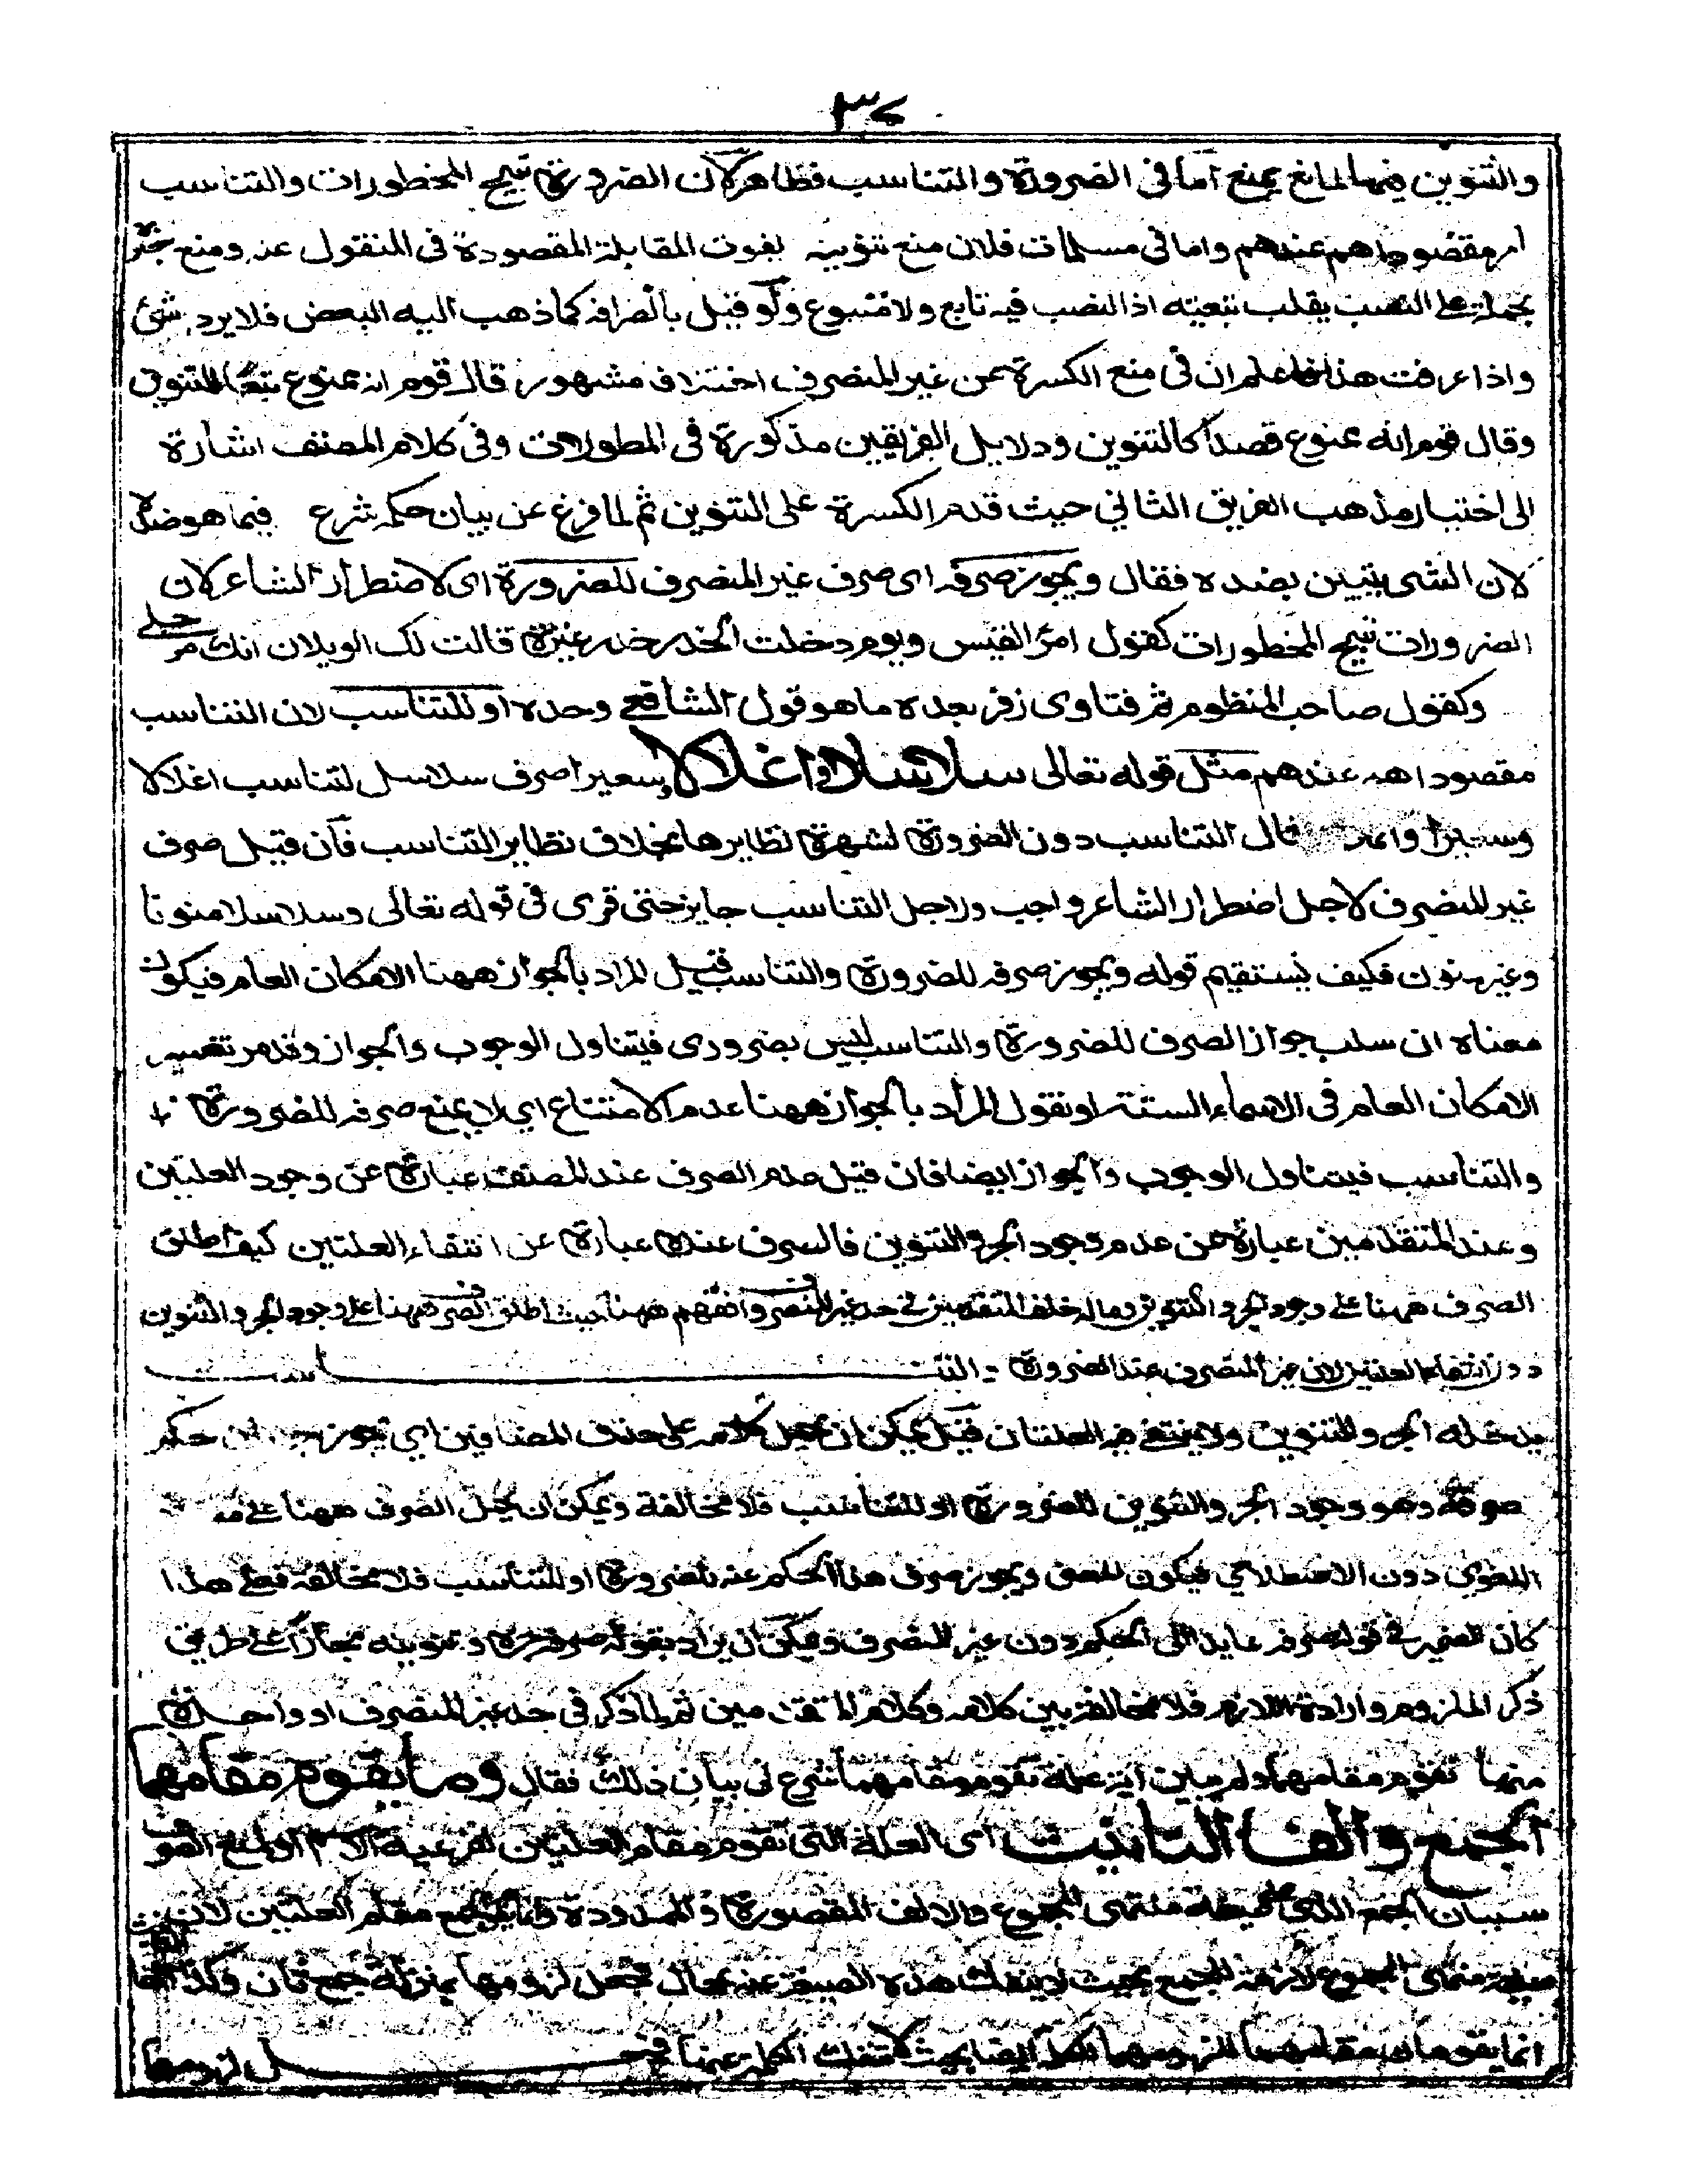 ٣٧
والتنوين فيهما لمانع يمنع أما في الضرورة والتناسب فظاهر لأن الضرورة تبيح المحظورات والتناسب
أمر مقصود عندهم واما في مسلمات فلان منع تنوينه يفوت المقابلة المقصودة في المنقول عنه ومنع جره
بحملة على النصب يقلب تبعيته اذ النصب فيه تابع ولا متبوع ولو قيل بانصرافه كما ذهب اليه البعض فلا يرد شئ
واذا عرفت هذا فاعلم ان في منع الكسرة عن غير المنصرف اختلاف مشهور قال قوم انه ممنوع تبعا للتنوين
وقال قوم انه ممنوع قصدا كالتنوين ودلايل الفريقين مذكورة في المطولات وفي كلام المصنف اشارة
الى اختيار مذهب الفريق الثاني حيث قدم الكسرة على التنوين ثم لما فرغ عن بيان حكمه شرع فيما هو ضده
لان الشى يتبين بضده فقال ويجوز صرفه اى صرف غير المنصرف للضرورة اى لاضطرار الشاعر لان
الضرورات تبيح المحظورات كقول امرء القيس ويوم دخلت الخدر خدر عنيزة قالت لك الويلات انك مرجلى
وكقول صاحب المنظوم ثم فتاوى زفر بعده ما هو قول الشافعي وحده او للتناسب لان التناسب
مقصود اهم عندهم مثل قوله تعالى سلاسلا واغلالا وسعيرا صرف سلاسل لتناسب اغلالا
وسعيرا وانما قال التناسب دون الضرورة لشهرة نظايرها بخلاف نظاير التناسب فان قيل صرف
غير المنصرف لاجل اضطرار الشاعر واجب ولاجل التناسب جايز حتى قرى في قوله تعالى وسلاسلا منونا
وغير منون فكيف يستقيم قوله ويجوز صرفه للضرورة والتناسب قيل المراد بالجواز ههنا الامكان العام فيكون
معناه ان سلب جواز الصرف للضرورة والتناسب ليس بضروري فيتناول الوجوب والجواز وقد مر تفسير
الامكان العام في الاسماء الستة او نقول المراد بالجواز ههنا عدم الامتناع اي لا يمنع صرفه للضرورة
والتناسب فيتناول الوجوب والجواز ايضا فان قيل عدم الصرف عند المصنف عبارة عن وجود العلتين
وعند المتقدمين عبارة عن عدم وجود الجر والتنوين فالصرف عنده عبارة عن انتفاء العلتين كيف اطلق
الصرف ههنا على وجود الجر والتنوين وماله خلف المتقدمين في حد غير المنصرف وافقهم ههنا حيث اطلق الصرف ههنا على وجود الجر والتنوين
دون انتفاء العلتين لان غير المنصرف عند الضرورة والتناسب
يدخله الجر والتنوين ولا ينتفي فيه العلتان قيل يمكن ان يحمل كلامه على حذف المضافين اي يجوز حكم
صرفه وهو وجود الجر والتنوين للضرورة او للتناسب فلا مخالفة ويمكن ان يحمل الصرف ههنا على
اللغوى دون الاصطلاحي فيكون المعنى ويجوز صرف هذا الحكم عنه للضرورة او للتناسب فلا مخالفة فعلى هذا
كان الضمير في قوله صرفه عايدا الى الحكم دون غير المنصرف ويمكن ان يراد بقوله صرفه جره وتنوينه مجازا على طريق
ذكر الملزوم وارادة اللازم فلا مخالفة بين كلامه وكلام المتقدمين ثم لما ذكر في حد غير المنصرف او واحدة
منها تقوم مقامهما ولم يبين اية علة تقوم مقامهما شرع في بيان ذلك فقال وما يقوم مقامهما
الجمع والفا التانيث اى العلة التى تقوم مقام العلتين
سببان الجمع الذي على صيغة منتهى الجموع والالف المقصورة والممدودة وانما يقوم الجمع مقام العلتين لان
صيغة منتهى الجموع لازمة للجمع بحيث لا ينفك هذه الصيغة عنه بحال فجعل لزومها بمنزلة جمع ثان وكذا
انما يقومان مقامهما للزومهما ايضا بحيث لا تنفك الكلمة عنهما فجعل لزومهما